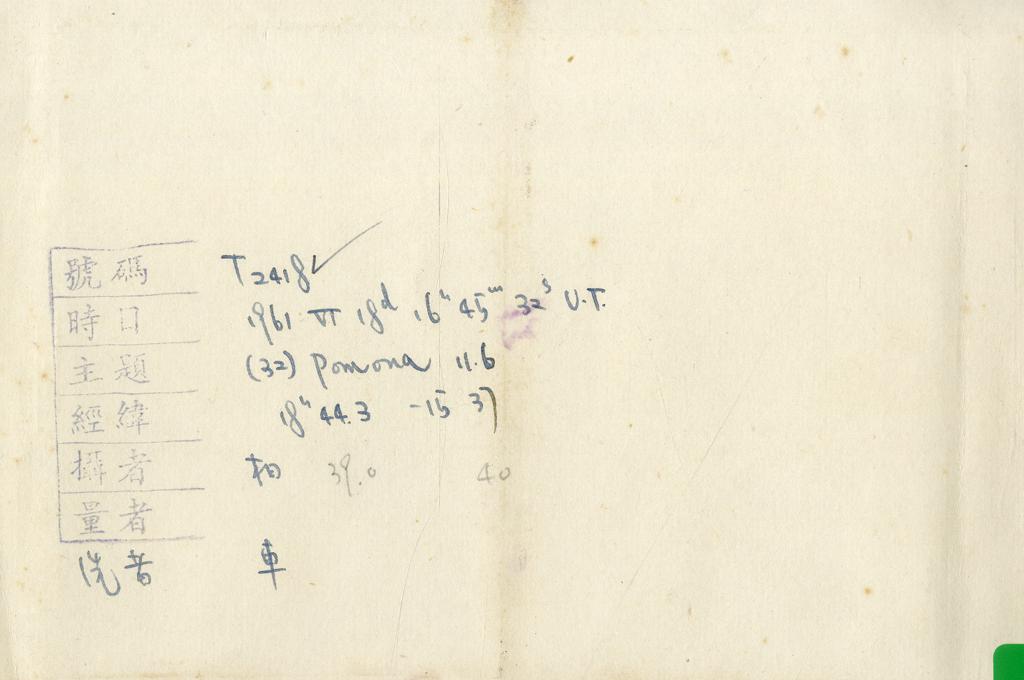 號碼 T2418 ✓
時日 1961 VI 18ᵈ 16ʰ 45ᵐ 32ˢ U.T.
主題 (32) Pomona 11.6
經緯 18ʰ 44.3 -15 37
攝者 柏 39.0 40
量者
洗者 車